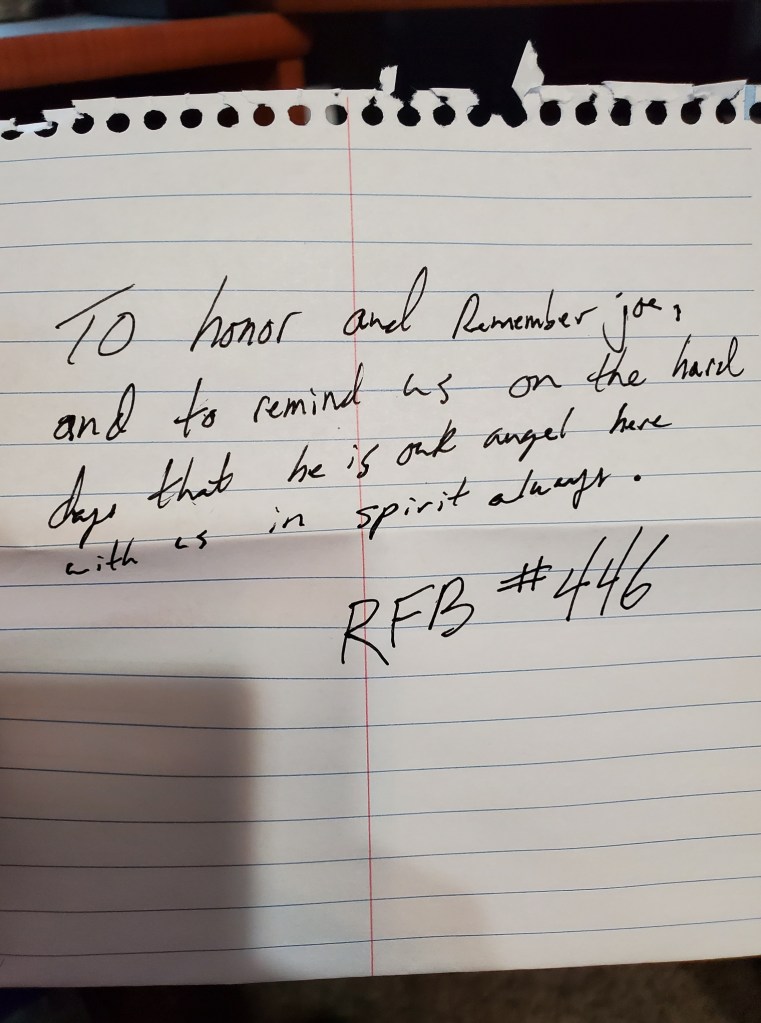 To honor and Remember joe,
and to remind us on the hard
days that he is our angel here
with us in spirit always.
RFB #446